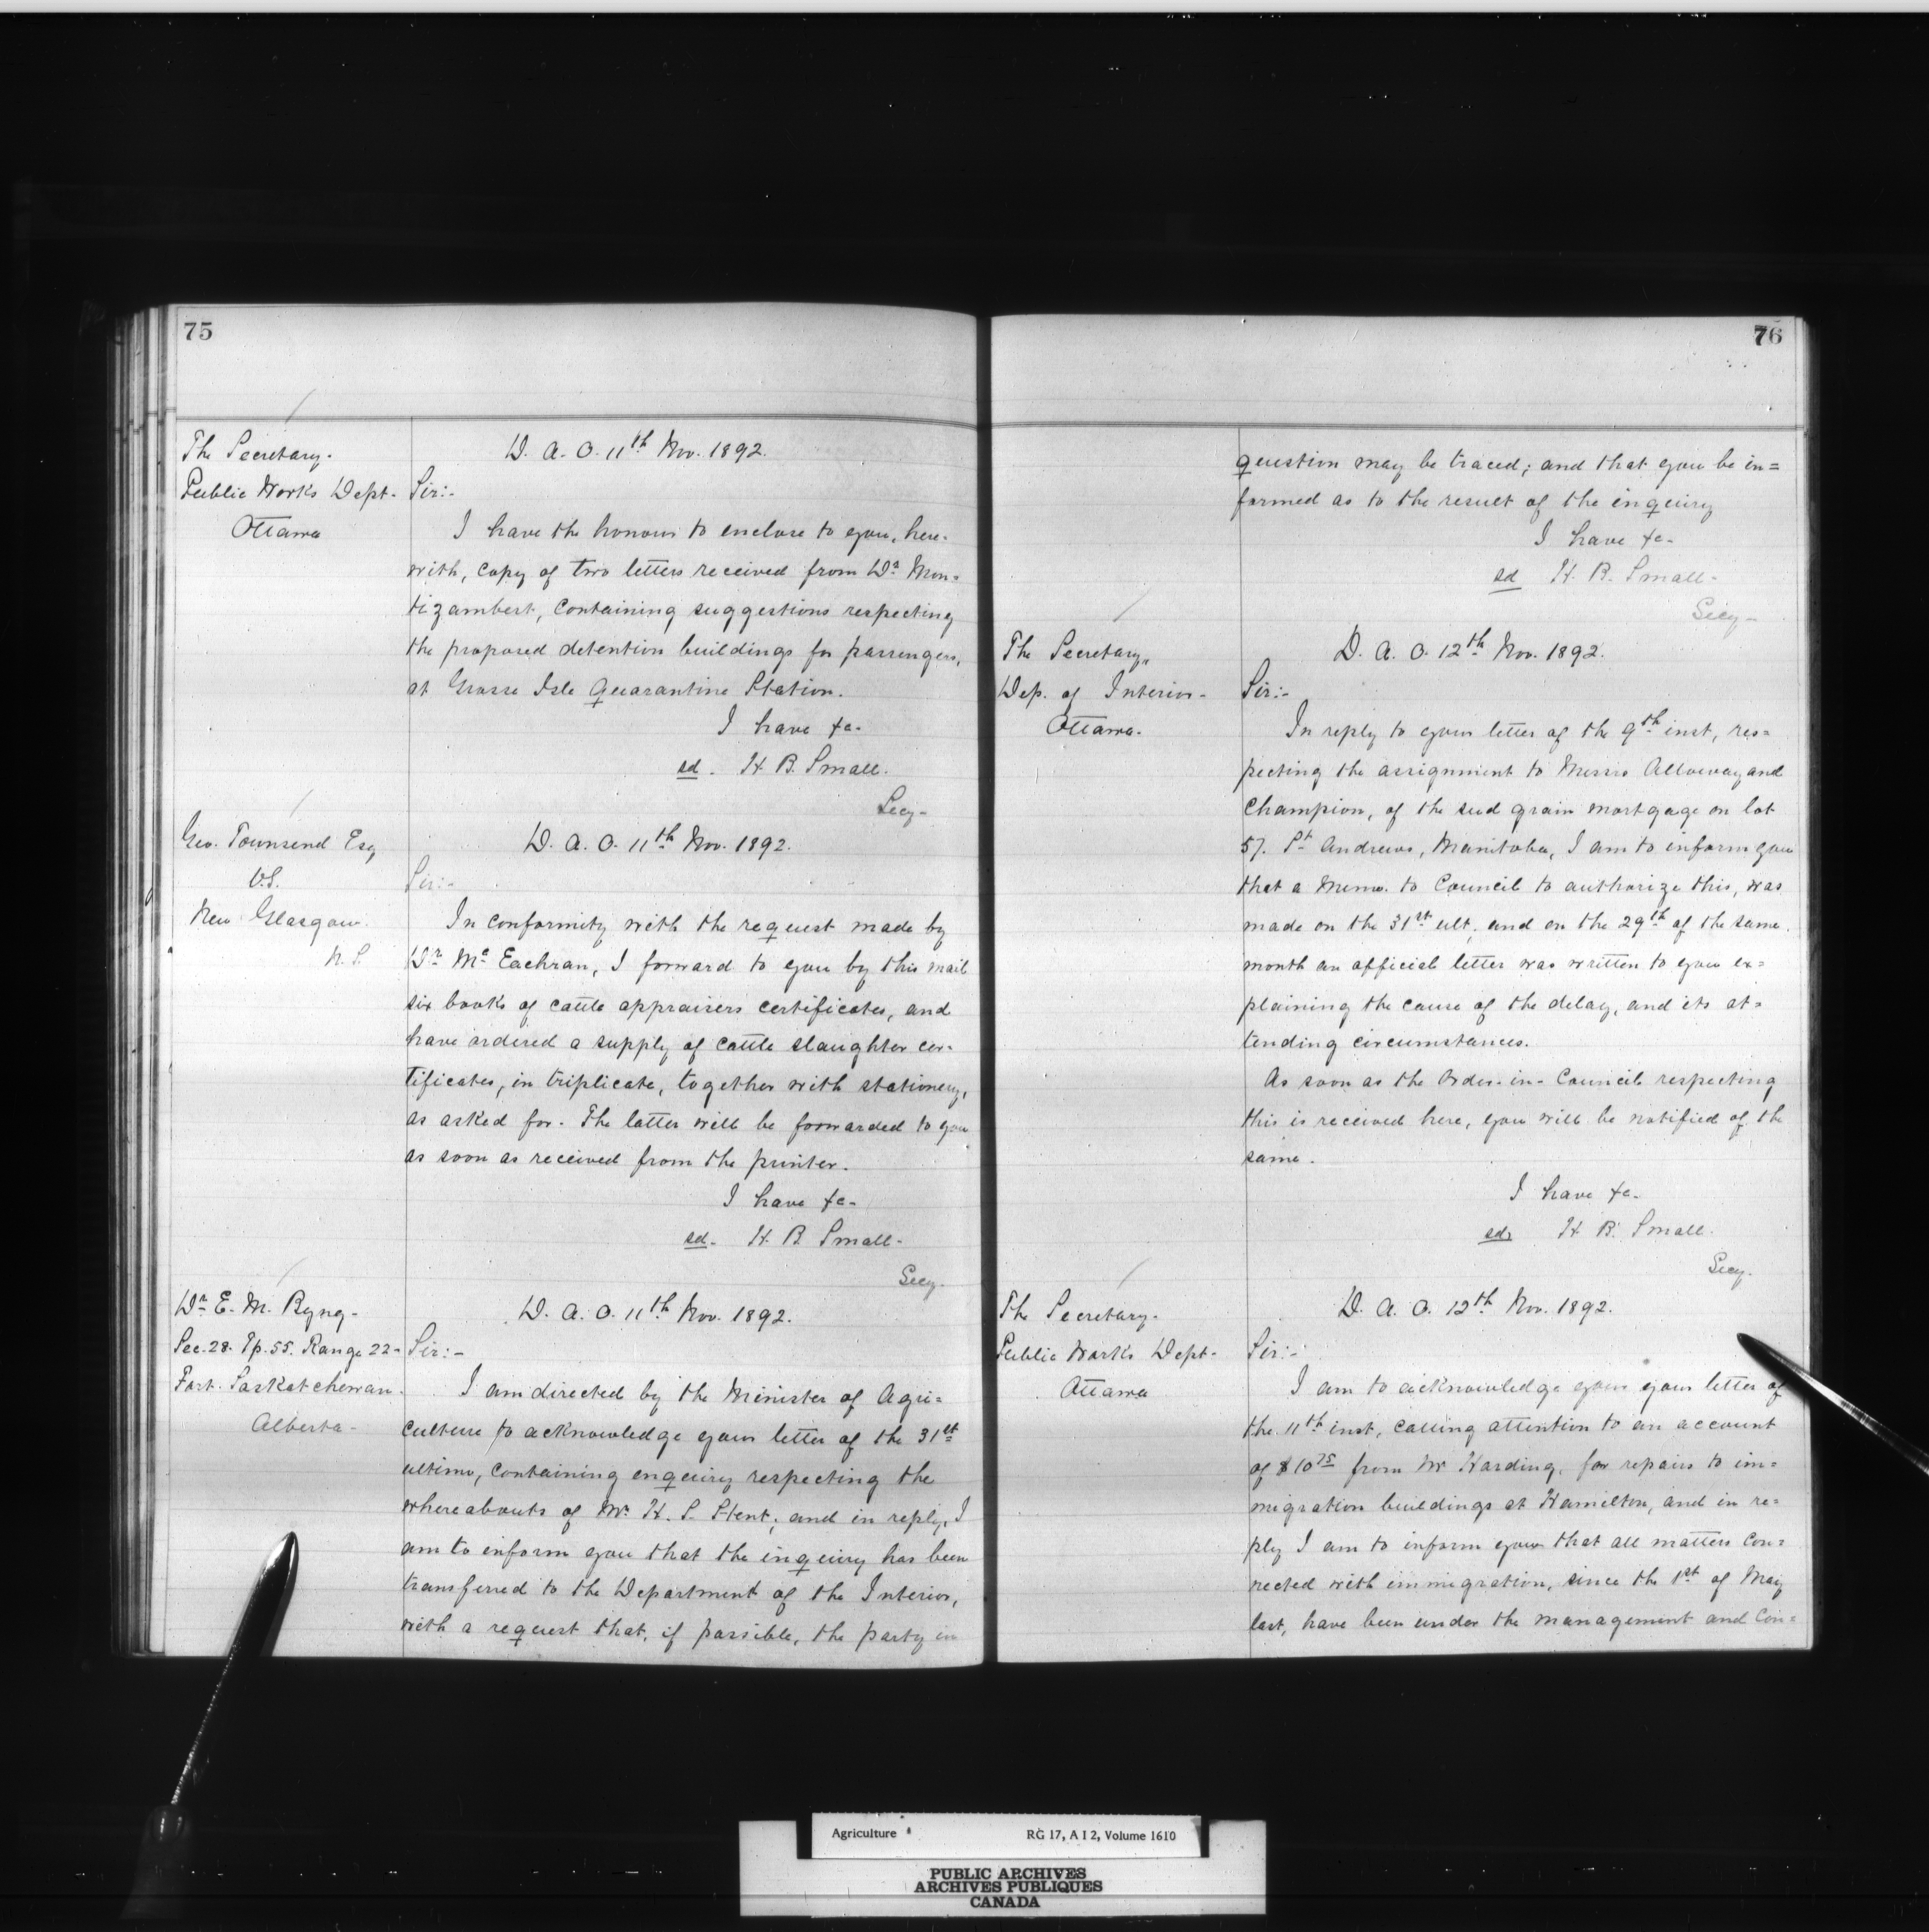 75
The Secretary.
Public Works Dept.
Ottawa
D. A. O. 11th Nov. 1892.
Sir:-
I have the honour to enclose to you, here-
with, copy of two letters received from Dr. Mon=
tizambert, containing suggestions respecting
the proposed detention buildings for passengers,
at Grosse Isle Quarantine Station.
I have &c-
sd. H. B. Small.
Secy-
Geo. Townsend Esq
V.S.
New Glasgow.
N. S.
D. A. O. 11th Nov. 1892.
Sir:-
In conformity with the request made by
Dr. Mc Eachran, I forward to you by this mail
six books of cattle appraisers certificates, and
have ordered a supply of cattle slaughter cer-
tificates, in triplicate, together with stationery,
as asked for. The latter will be forwarded to you
as soon as received from the printer.
I have &c-
sd. H. B. Small-
Secy.
Dr. E. M. Byng-
Sec. 28. Tp. 55. Range 22-
Fort. Saskatchewan.
Alberta-
D. A. O. 11th Nov. 1892.
Sir:-
I am directed by the Minister of Agri=
culture to acknowledge your letter of the 31st
ultimo, containing enquiry respecting the
whereabouts of Mr. H. S. Stent; and in reply, I
am to inform you that the inquiry has been
transferred to the Department of the Interior,
with a request that, if possible, the party in
76
question may be traced; and that you be in=
formed as to the result of the inquiry
I have &c-
sd H. B. Small-
Secy-
The Secretary,
Dep. of Interior-
Ottawa.
D. A. O. 12th Nov. 1892.
Sir:-
In reply to your letter of the 9th inst, res=
pecting the assignment to Messrs Alloway and
Champion, of the seed grain mortgage on lot
57. St Andrews, Manitoba, I am to inform you
that a Memo. to Council to authorize this, was
made on the 31st ult, and on the 29th of the same
month an official letter was written to you ex=
plaining the cause of the delay, and its at=
tending circumstances.
As soon as the Order-in-Council respecting
this is received here, you will be notified of the
same.
I have &c-
sd. H. B. Small.
Secy.
The Secretary.
Public Works Dept-
Ottawa
D. A. O. 12th Nov. 1892.
Sir:-
I am to acknowledge your your letter of
the 11th inst, calling attention to an account
of $10 75 from Mr Harding, for repairs to im=
migration buildings at Hamilton, and in re=
ply I am to inform you that all matters con=
nected with immigration, since the 1st of May
last, have been under the management and con=
Agriculture RG 17, A I 2, Volume 1610
PUBLIC ARCHIVES
ARCHIVES PUBLIQUES
CANADA